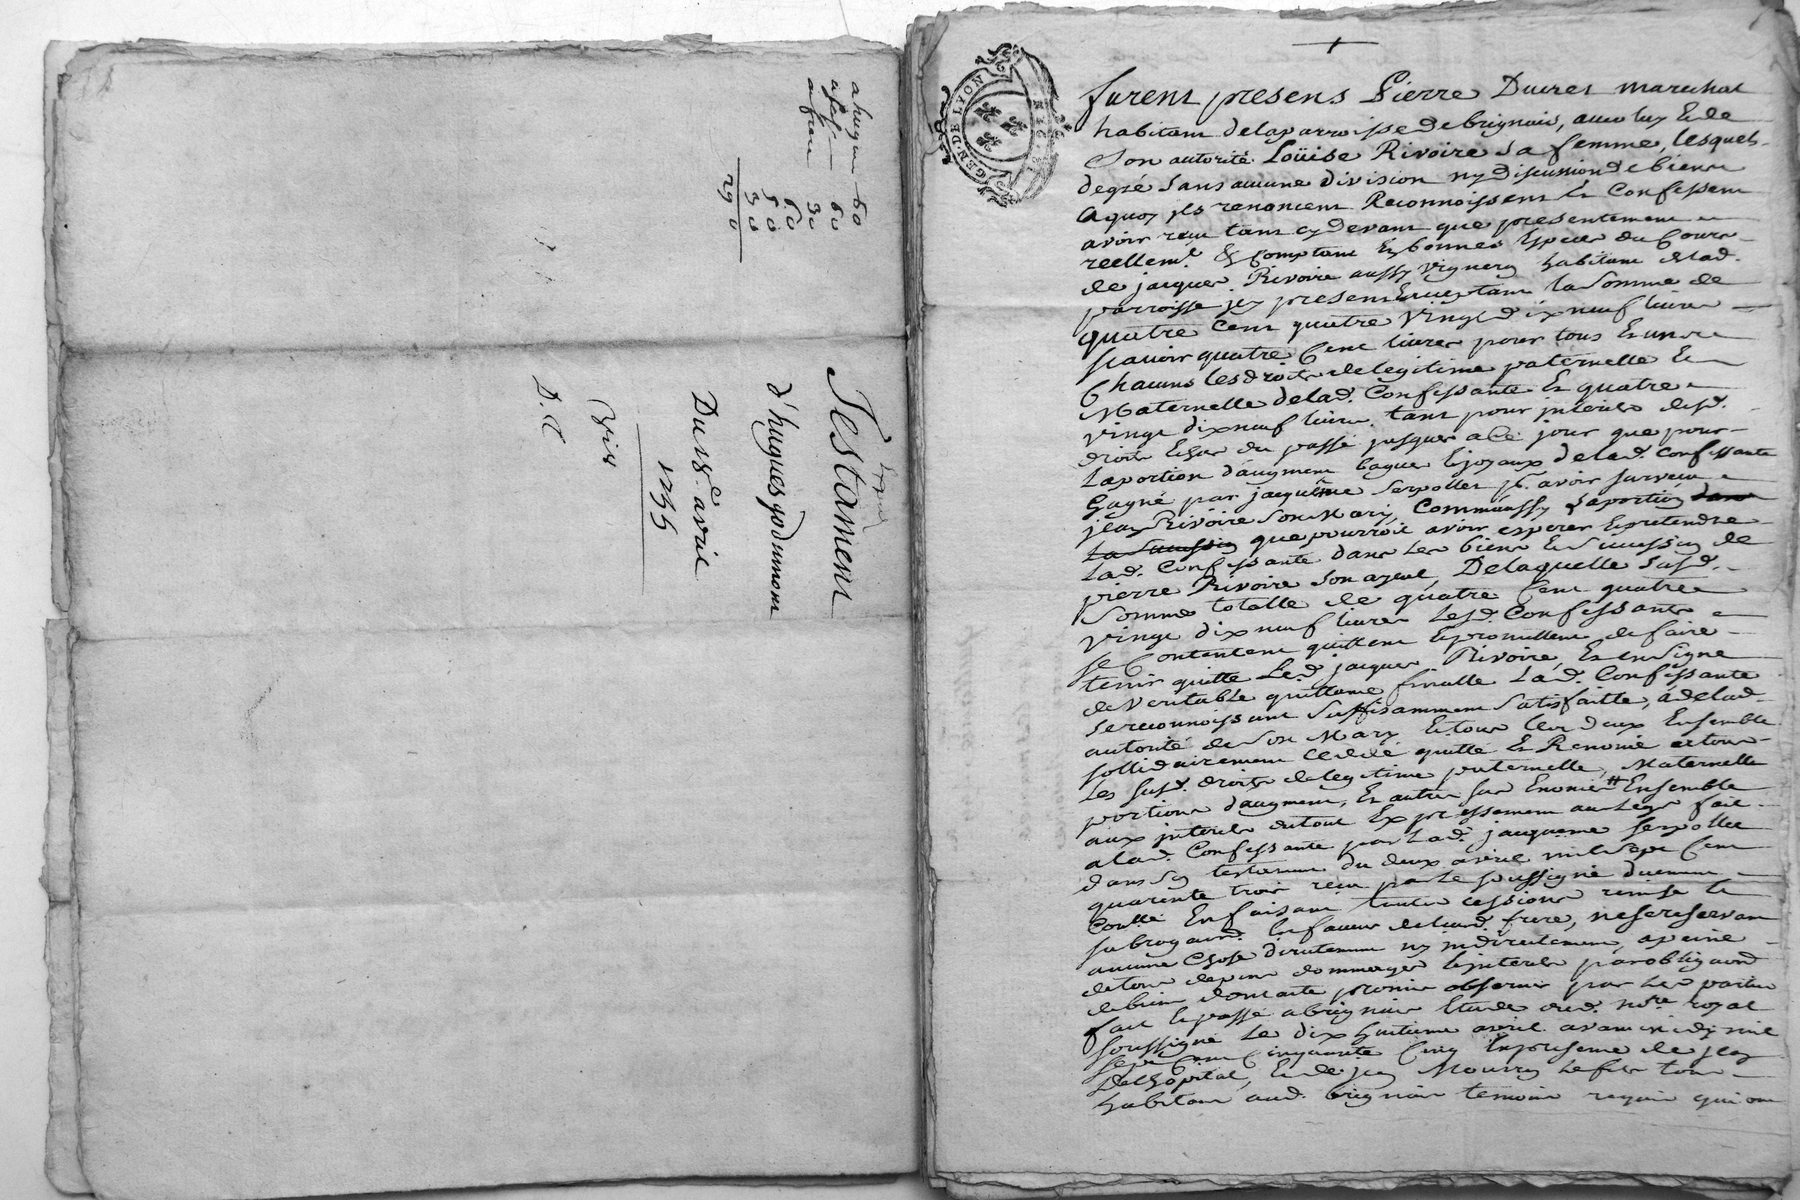 Testament
d'hugues godumont
Du 18e avril
1755
D. C.
60
60
30
60
50
30
290
GEN. DE LYON
furent presens Pierre Ducret marechal
habitant delaparroisse de brignais, avec luy Et de
Son autorité Loüise Rivoire sa femme, lesquels
degré sans aucune division ny discussion de biens
aquoy ils renoncent Reconnoissent Et Confessent
avoir reçu tant cy devant que presentement
reellemt. & Comptant En bonnes Especes du Cours
de jacques Rivoire aussy vigneron habitant delad.
parroisse jcy present Acceptant la Somme de
quatre Cent quatre vingt dix neuf livres
scavoir quatre Cent livres pour tous Et un
Chacuns les droits de legitime paternelle Et
Maternelle delad. Confessante Et quatre
vingt dix neuf livres tant pour jnterets desd.
droits Echus du passé jusques a Ce jour que pour
Laportion daugment bagues Et joyaux delad. Confessante
Gagné par jacquême Serpollet pr. avoir survecu
jean Rivoire Son Mary Comm'aussy Laportion dans
La Succession que pourroit avoir esperer Et pretendre
Lad. Confessante dans les biens Et Succession de
pierre Rivoire Son ayeul, De laquelle susd.
Somme totalle de quatre Cent quatre
vingt dix neuf livres Lesd. Confessants
se Contentent quittent Et promettent de faire
tenir quitte Led. jacques Rivoire, Et En Signe
de veritable quittance finalle Lad. Confessante
se reconnoissant Suffisamment Satisfaitte, a delad.
autorité de Son Mary Et tous les deux Ensemble
sollidairement Cedé quitté Et Renoncé a tous
Les susd. droits de legitime paternelle, Maternelle
portion daugment, Et autres sus Enoncés # Ensemble
aux jnterets du tout Expressement au Legs fait
a lad. Confessante par Lad. jacqueme Serpollet
dans Son testament du deux avril mil Sept Cent
quarente trois reçu par le soussigné duement
Conllé En faisant toutes cessions remise Et
subrogaons En faveur de leurd. frere, ne se reservant
aucune Chose directement ny indirectement, a peine
de tous depens dommages Et jnterets par obligaons
de biens dont acte promis observer par Les parties
fait Et passé a brignais Etude dud. Nore royal
soussigné Le dix huitieme avril avant midy mil
sept Cent Cinquante Cinq En presence de jean
Delhopital, Et de jean Mourry Le fils tous
habitans aud. brignais temoins requis qui ont